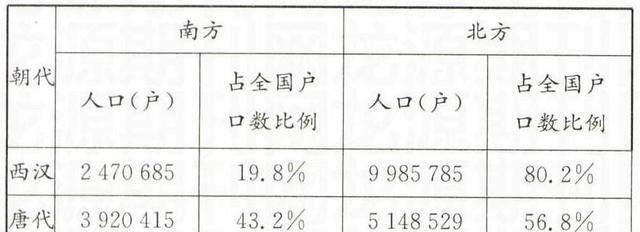 朝代 南方 北方
人口(户) 占全国户口数比例 人口(户) 占全国户口数比例
西汉 2 470 685 19.8% 9 985 785 80.2%
唐代 3 920 415 43.2% 5 148 529 56.8%